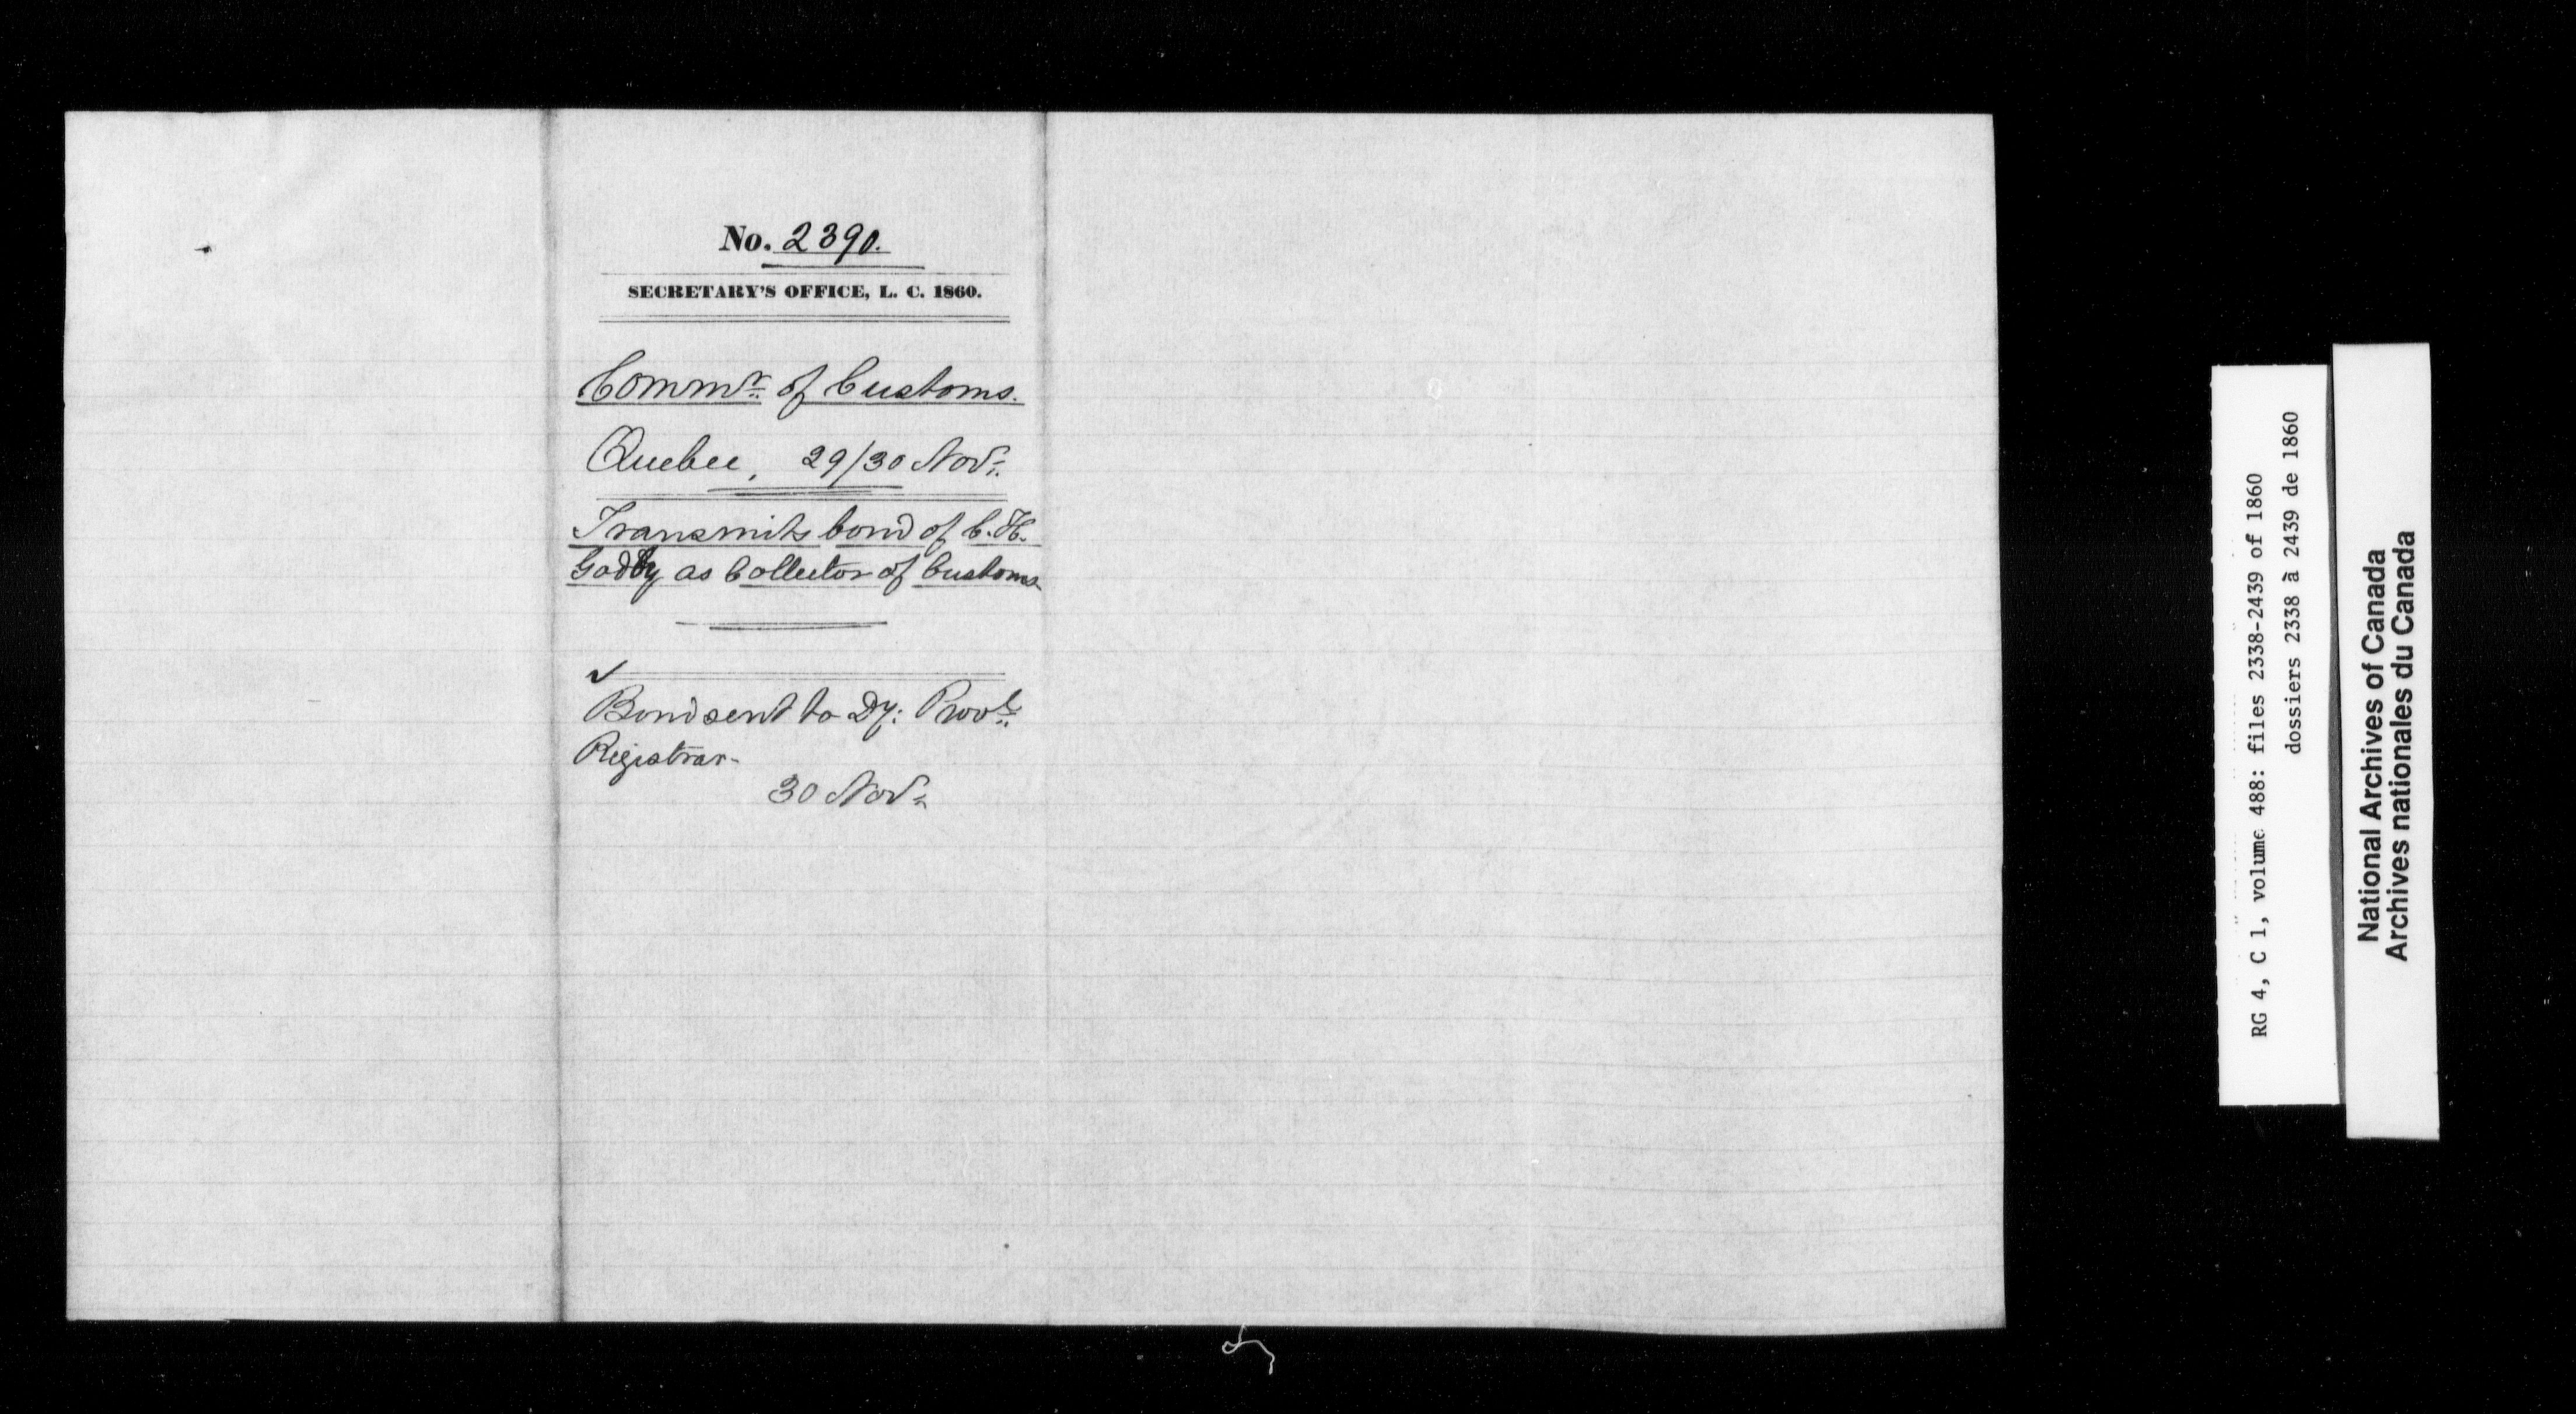 No. 2390.
SECRETARY'S OFFICE, L. C. 1860.
Commr. of Customs.
Quebec, 29/30 Novr.
Transmits bond of C. H.
Godby as Collector of Customs
Bond sent to Dy: Provl.
Registrar-
30 Novr.
RG 4, C 1, volume 488: files 2338-2439 of 1860
dossiers 2338 à 2439 de 1860
National Archives of Canada
Archives nationales du Canada